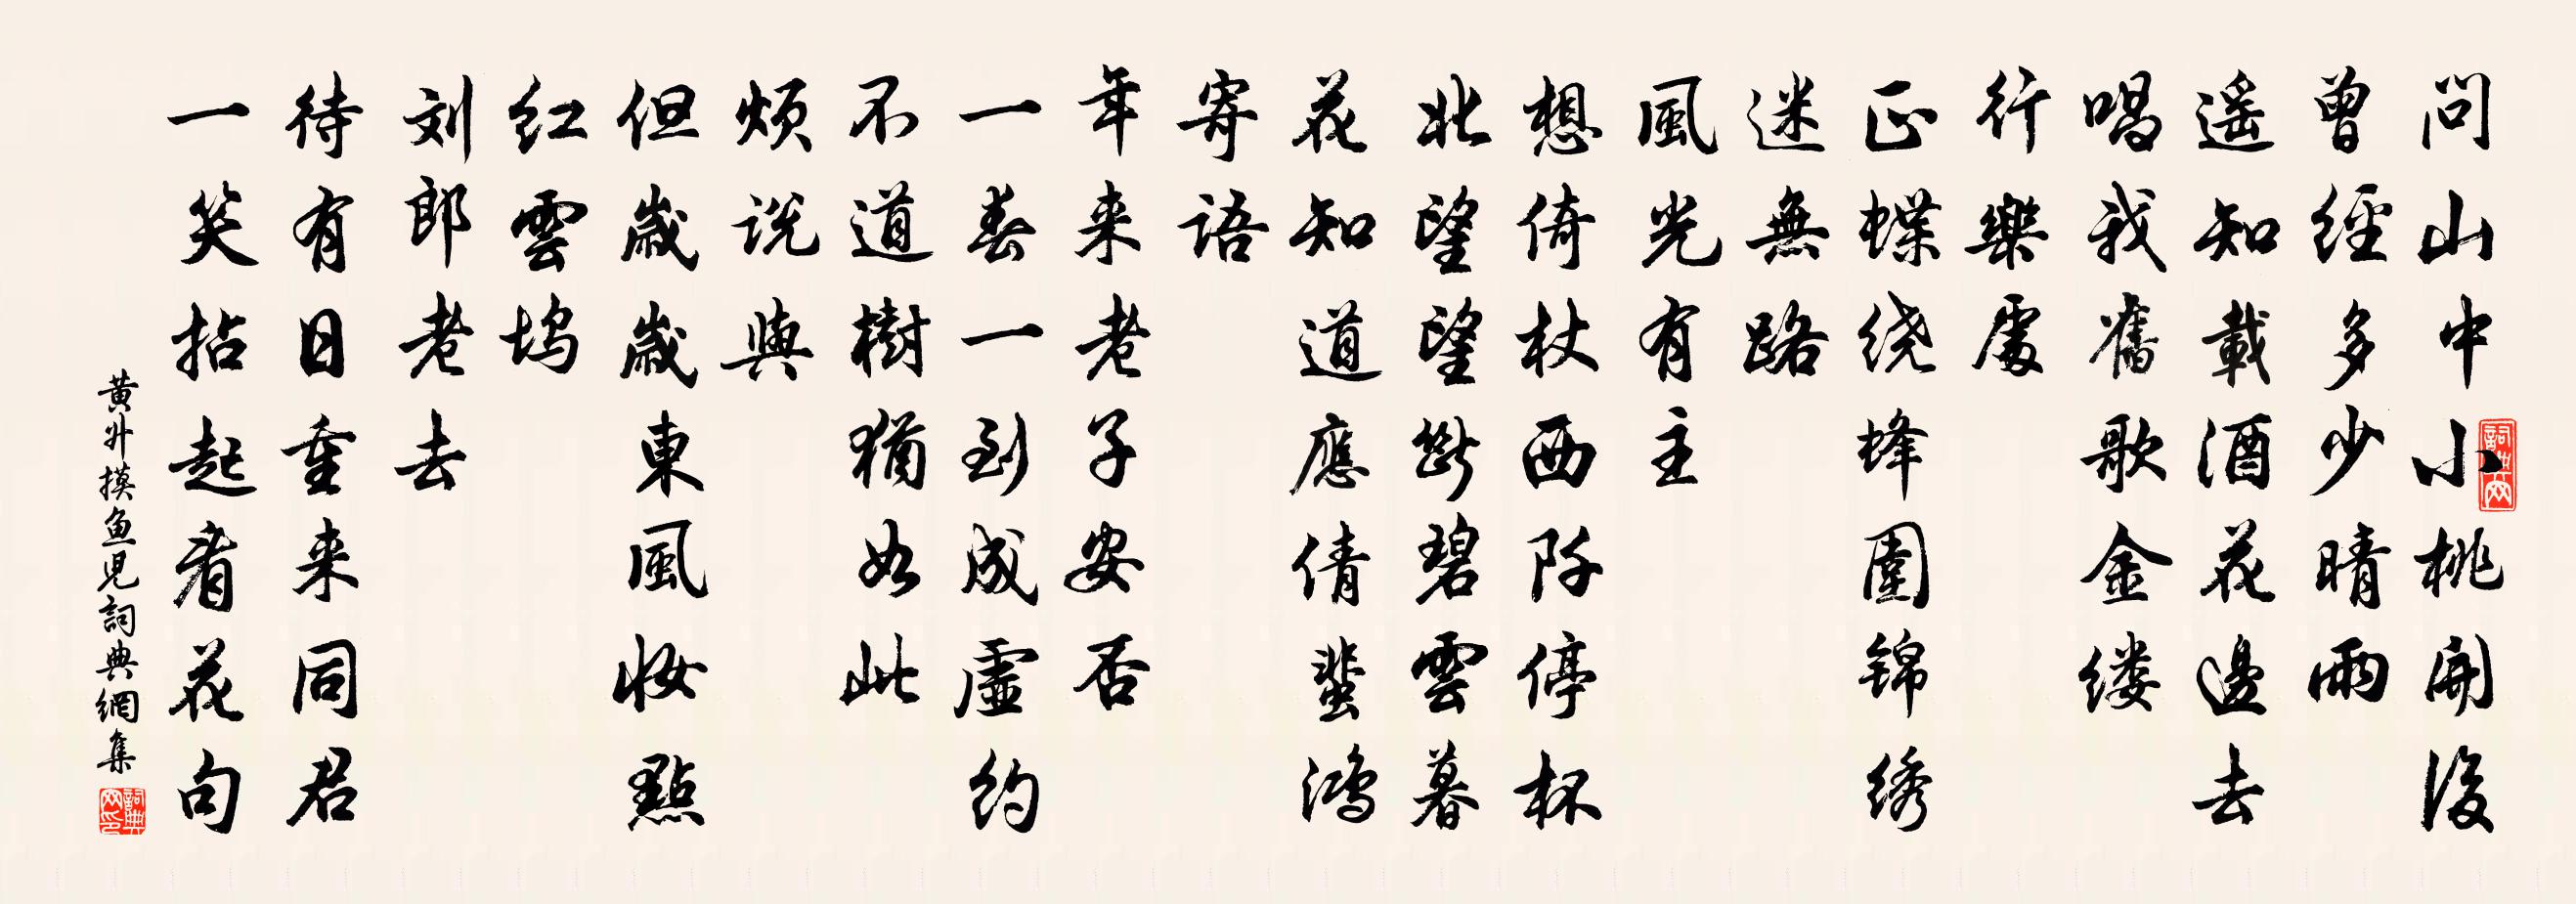 問山中小桃開後
曾經多少晴雨
遥知載酒花邊去
唱我舊歌金缕
行樂處
正蝶绕蜂圍锦绣
迷無路
風光有主
想倚杖西阡停杯
北望望斷碧雲暮
花知道應倩蜚鸿
寄語
年来老子安否
一春一到成虚约
不道樹猶如此
烦说與
但歲歲東風妆點
红雲坞
刘郎老去
待有日重来同君
一笑拈起看花句
黄升摸鱼児詞典網集
詞典网
詞典网印